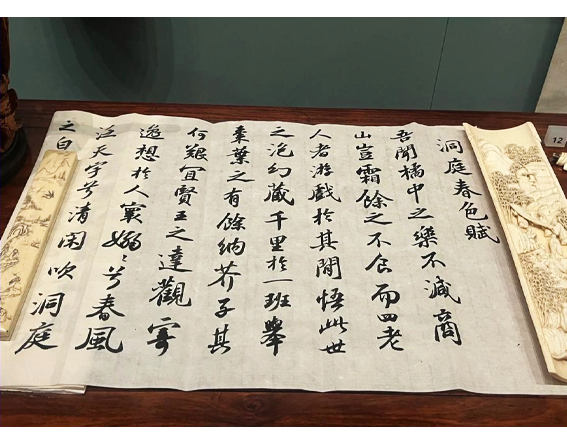 洞庭春色賦
吾聞橘中之樂不減商
山豈霜餘之不食而四老
人者游戲於其間悟此世
之泡幻藏千里於一班舉
棗葉之有餘納芥子其
何艱宜賢王之達觀寄
逸想於人寰嫋〻兮春風
泛天宇兮清閑吹洞庭
之白
12